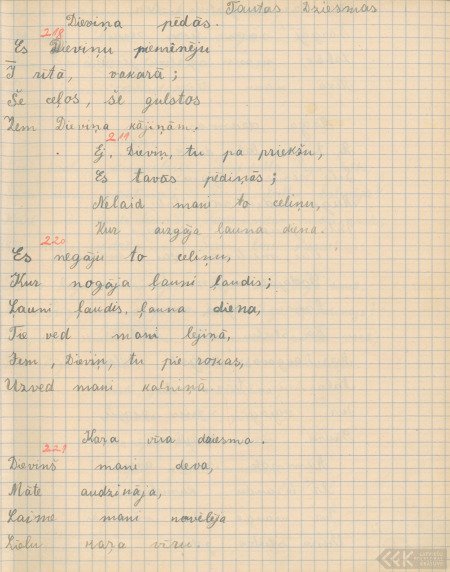 Tautas Dziesmas
Dieviņa pēdās.
218
Es Dieviņu pieminēju
Ī rītā, vakarā;
Še ceļos, še gulstos
Zem Dieviņa kājiņām.
219
Ej, Dieviņ, tu pa priekšu,
Es tavās pēdiņās;
Nelaid mani to celiņu,
Kur aizgāja ļauna diena.
220
Es negāju to celiņu,
Kur nogāja ļauni ļaudis;
Ļauni ļaudis, ļauna diena,
Tie ved mani lejiņā,
Jem, Dieviņ, tu pie rokas,
Uzved mani kalniņā.
Kara vīra dziesma.
221
Dieviņš mani deva,
Māte audzināja,
Laime mani novēlēja
Lielu kara vīru.